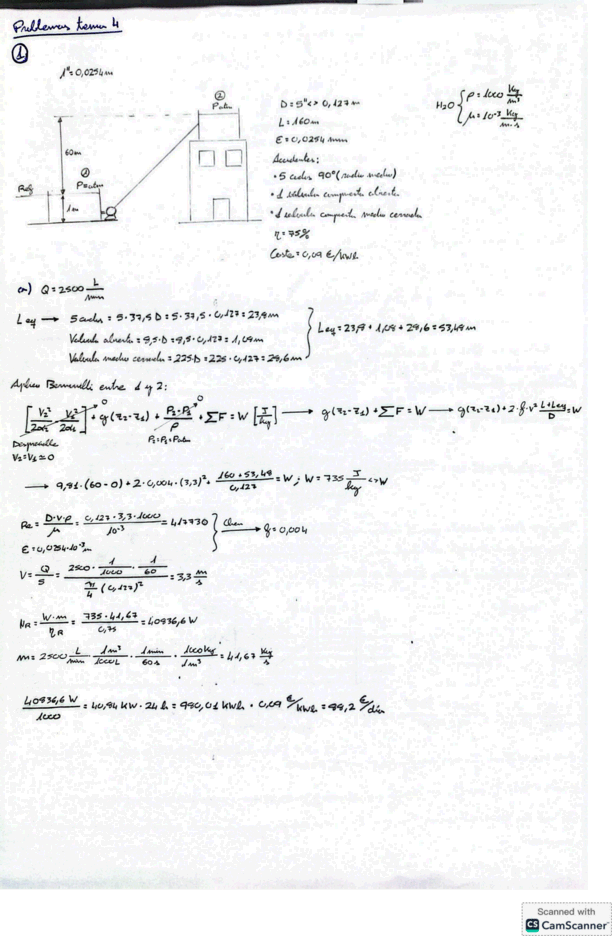 Problemas tema 4
①
1" = 0,0254 m
②
Patm
60m
①
P=atm
Ref
1m
D = 5" <> 0,127 m
L = 160 m
ε = 0,0254 mm
Accidentes:
· 5 codos 90° (radio medio)
· 1 válvula compuerta abierta
· 1 válvula compuerta medio cerrada
η = 75%
Coste = 0,09 €/kWh
H2O { ρ = 1000 Kg/m³
μ = 10⁻³ Kg/m·s
a) Q = 2500 L/min
Leq → 5 codos = 5 · 37,5 D = 5 · 37,5 · 0,127 = 23,8 m
Válvula abierta = 8,5 · D = 8,5 · 0,127 = 1,08 m
Válvula medio cerrada = 225 D = 225 · 0,127 = 28,6 m
Leq = 23,8 + 1,08 + 28,6 = 53,48 m
Aplico Bernoulli entre 1 y 2:
[V2²/2α2 - V1²/2α1] → 0 + g(z2-z1) + (P2-P1)/ρ → 0 + ΣF = W [J/kg] → g(z2-z1) + ΣF = W → g(z2-z1) + 2·f·v² (L+Leq)/D = W
Despreciable
V2 = V1 ≃ 0
P1 = P2 = Patm
→ 9,81 · (60-0) + 2 · 0,004 · (3,3)² · (160 + 53,48)/0,127 = W ; W = 735 J/kg <> W
Re = D·V·ρ/μ = 0,127 · 3,3 · 1000/10⁻³ = 417730
ε = 0,0254·10⁻³ m
Chen → f = 0,004
V = Q/S = (2500 · 1/1000 · 1/60)/(π/4 (0,127)²) = 3,3 m/s
NR = W·m/ηR = 735 · 41,67/0,75 = 40836,6 W
m = 2500 L/min · 1m³/1000L · 1min/60s · 1000Kg/1m³ = 41,67 Kg/s
40836,6 W/1000 = 40,84 kW · 24 h = 980,01 kWh · 0,09 €/kWh = 88,2 €/día
Scanned with
CS CamScanner